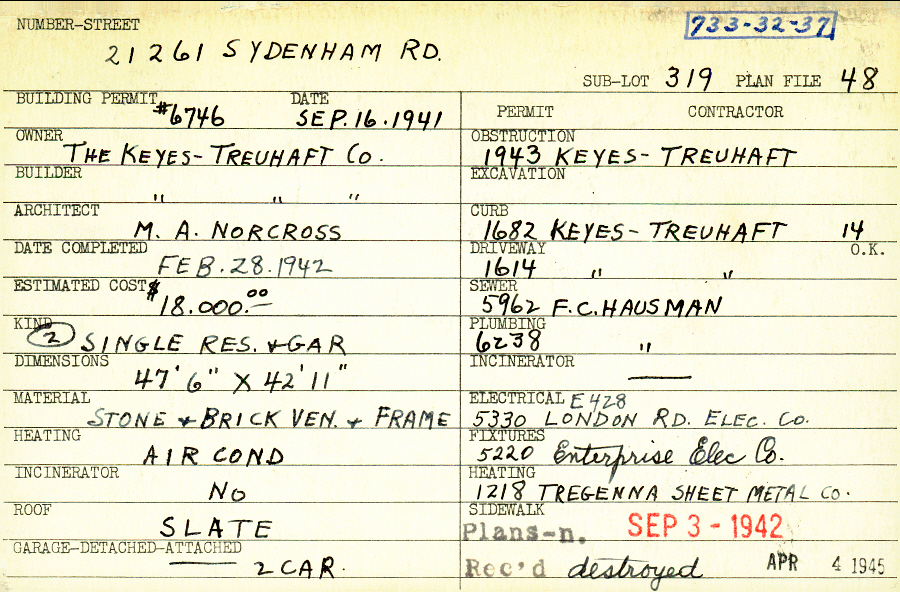 NUMBER-STREET
733-32-37
21261 SYDENHAM RD.
SUB-LOT 319 PLAN FILE 48
BUILDING PERMIT #6746 DATE SEP.16.1941
OWNER THE KEYES-TREUHAFT CO.
BUILDER " " "
ARCHITECT M. A. NORCROSS
DATE COMPLETED FEB.28.1942
ESTIMATED COST $18.000.00
KIND 2 SINGLE RES. & GAR
DIMENSIONS 47'6" X 42'11"
MATERIAL STONE & BRICK VEN. & FRAME
HEATING AIR COND
INCINERATOR NO
ROOF SLATE
GARAGE-DETACHED-ATTACHED 2 CAR.
PERMIT CONTRACTOR
OBSTRUCTION 1943 KEYES-TREUHAFT
EXCAVATION
CURB 1682 KEYES-TREUHAFT 14
DRIVEWAY 1614 " " O.K.
SEWER 5962 F.C. HAUSMAN
PLUMBING 6238 "
INCINERATOR —
ELECTRICAL E428
5330 LONDON RD. ELEC. CO.
FIXTURES 5220 Enterprise Elec Co.
HEATING 1218 TREGENNA SHEET METAL CO.
SIDEWALK
Plans-n. SEP 3-1942
Rec'd destroyed APR 4 1945